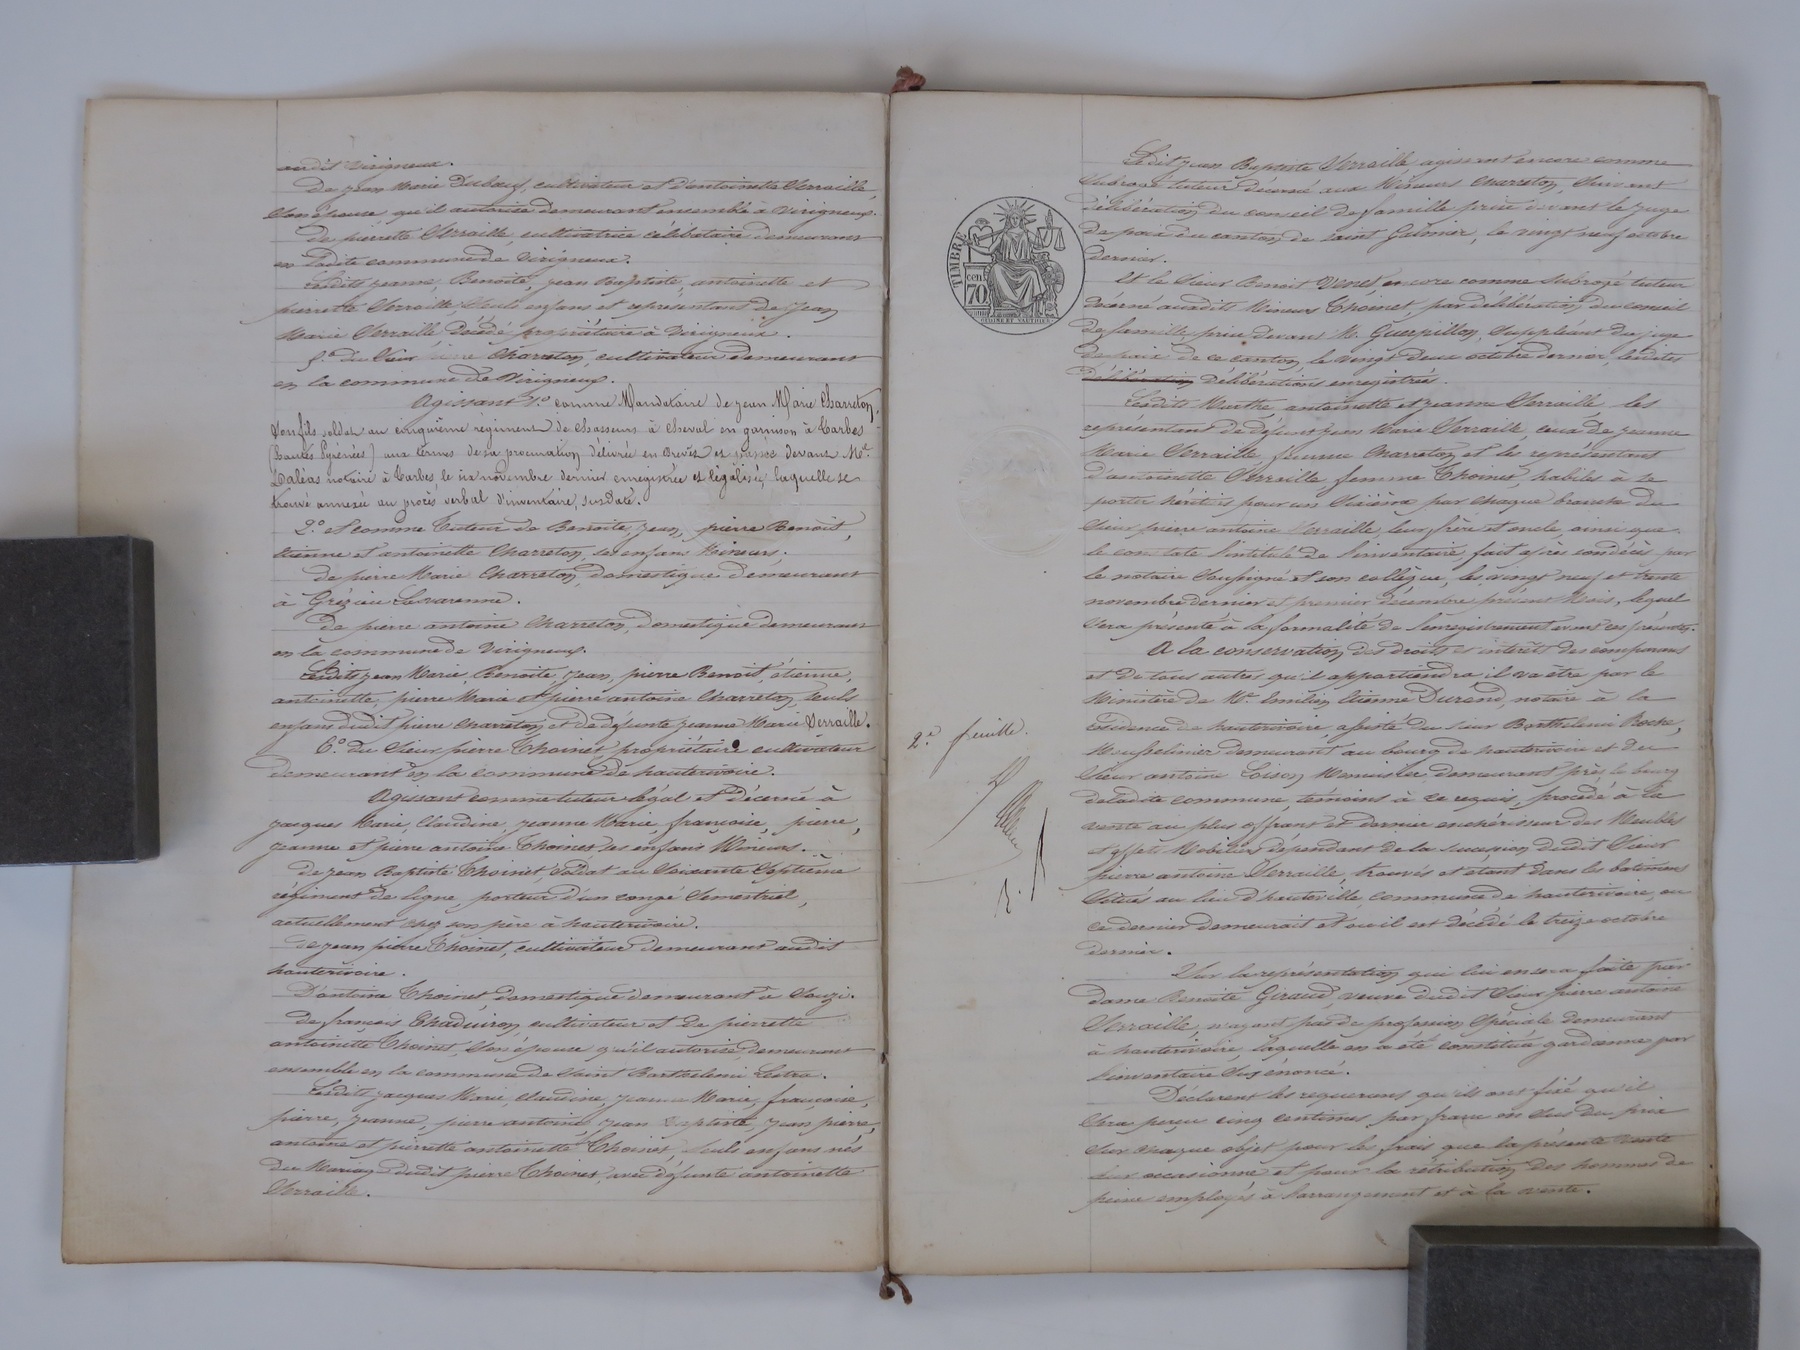 audit Virigneux.
De Jean Marie Duboeuf, cultivateur et d'antoinette Verraille,
Son épouse, qu'il autorise demeurant ensemble à Virigneux.
De pierrette Verraille, cultivatrice célibataire demeurant
en Ladite commune de Virigneux.
Lesdits Jeanne, Benoite, Jean Baptiste, antoinette et
pierrette Verraille, Seuls enfans et représentant de Jean
Marie Verraille décédé propriétaire à Virigneux.
5.° du Sieur pierre Charreton, cultivateur demeurant
en la commune de Virigneux.
Agissant 1.° comme Mandataire de Jean Marie Charreton,
Son fils soldat au cinquième régiment de chasseurs à cheval en garnison à Tarbes
(Hautes Pyrénées) aux termes de sa procuration délivrée en Brevet et passée devant Me.
Daléas notaire à Tarbes, le six novembre dernier enregistrée et légalisée, laquelle se
trouve annexée au procès verbal d'inventaire, susdaté.
2.° et comme Tuteur de Benoite, Jean, pierre Benoit,
Etienne et antoinette Charreton, ses enfans Mineurs.
de pierre Marie Charreton, domestique demeurant
à Grézieu Lavarenne.
De pierre antoine Charreton, domestique demeurant
en la commune de Virigneux.
Lesdits Jean Marie, Benoite, Jean, pierre Benoit, étienne,
antoinette, pierre Marie et pierre antoine Charreton, Seuls
enfans dudit pierre Charreton et de défunte Jeanne Marie Verraille.
6.° du Sieur pierre Thoinet propriétaire cultivateur
demeurant en la commune de hauterivoire.
Agissant comme tuteur légal et décerné à
Jacques Marie, Claudine, Jeanne Marie, françoise, pierre,
Jeanne et pierre antoine Thoinet ses enfans Mineurs.
de Jean Baptiste Thoinet, Soldat au Soixante Septième
régiment de ligne, porteur d'un congé Semestriel,
actuellement chez son père à hauterivoire.
de Jean pierre Thoinet, cultivateur demeurant audit
hauterivoire.
D'antoine Thoinet domestique demeurant à Souzi.
de françois Chaduiron cultivateur et de pierrette
antoinette Thoinet, Son épouse qu'il autorise, demeurant
ensemble en la commune de Saint Barthelemi Lestra.
Lesdits Jacques Marie, Claudine, Jeanne Marie, françoise,
pierre, Jeanne, pierre antoine, Jean Baptiste, Jean pierre,
antoine et pierrette antoinette Thoinet, Seuls enfans nés
Du Mariage dudit pierre Thoinet, avec défunte antoinette
Verraille.
Ledit Jean Baptiste Verraille agissant encore comme
Subrogé tuteur décerné aux Mineurs Charreton, Suivant
délibération du conseil de famille prise devant le juge
de paix du canton de Saint Galmier, le vingt neuf octobre
dernier.
Et le Sieur Benoit encore comme Subrogé tuteur
décerné audits Mineurs Thoinet, par délibération du conseil
de famille, prise devant M. Guerpillon, Suppléant du juge
de paix de ce canton, le vingt deux octobre dernier, lesdites
délibérations enregistrées.
Lesdits Marthe, antoinette et Jeanne Verraille, les
représentant de défunt Jean Marie Verraille, ceux de Jeanne
Marie Verraille, femme Charreton et les représentant
d'antoinette Verraille, femme Thoinet, habiles à se
porter héritiers pour un Sixième par chaque branche du
Sieur pierre antoine Verraille, leur frère et oncle, ainsi que
le constate l'intitulé de l'inventaire, fait après son décès par
le notaire Soussigné et son collègue, les vingt neuf et trente
novembre dernier et premier décembre présent Mois, lequel
Sera présenté à la formalité de l'enregistrement avant ces présentes.
A la conservation des droits et intérêts des comparans
et de tous autres qu'il appartiendra il va être par le
Ministère de Me. Emilien Etienne Durand, notaire à la
résidence de hauterivoire, assisté du Sieur Barthelemi Roche,
Mousselinier demeurant au bourg de hauterivoire et du
Sieur antoine Loison Menuisier, demeurant près le bourg
de ladite commune, témoins à ce requis, procédé à la
vente au plus offrant et dernier enchérisseur des Meubles
et effets Mobiliers dépendant de la succession dudit Sieur
pierre antoine Verraille, trouvés et étant dans les batimens
Situés au lieu d'hauteville, commune de hauterivoire, ou
ce dernier demeurait et ou il est décédé le treize octobre
dernier.
Sur la représentation qui lui en sera faite par
dame Benoite Giraud, veuve dudit Sieur pierre antoine
Verraille, n'ayant pas de profession Spéciale demeurant
à hauterivoire, laquelle en a été constituée gardienne par
l'inventaire Sus énoncé.
Déclarent les requerans qu'ils ont fixé qu'il
Sera perçu cinq centimes par franc en Sus du prix
Sur chaque objet pour les frais que la présente vente
leur occasionne et pour la rétribution des hommes de
peine employés à l'arrangement et à la vente.
TIMBRE
cen.
70
2.e feuille.